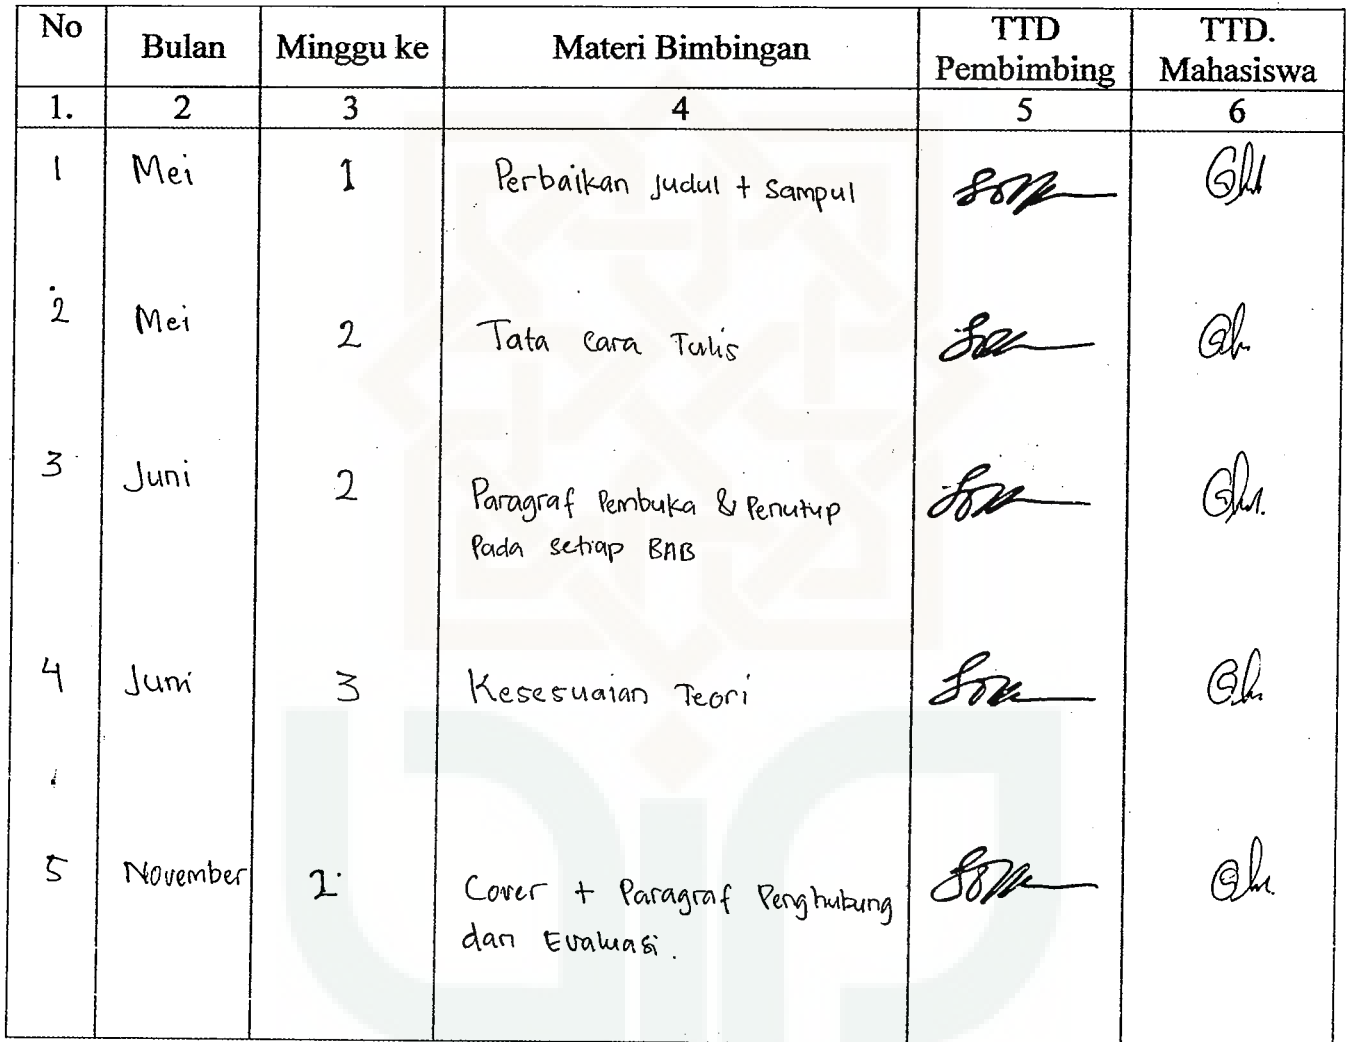 No Bulan Minggu ke Materi Bimbingan TTD Pembimbing TTD. Mahasiswa
1. 2 3 4 5 6
1 Mei 1 Perbaikan Judul + Sampul
2 Mei 2 Tata Cara Tulis
3 Juni 2 Paragraf Pembuka & Penutup
Pada setiap BAB
4 Juni 3 Kesesuaian Teori
5 November Cover + Paragraf Penghubung
dan Evaluasi.